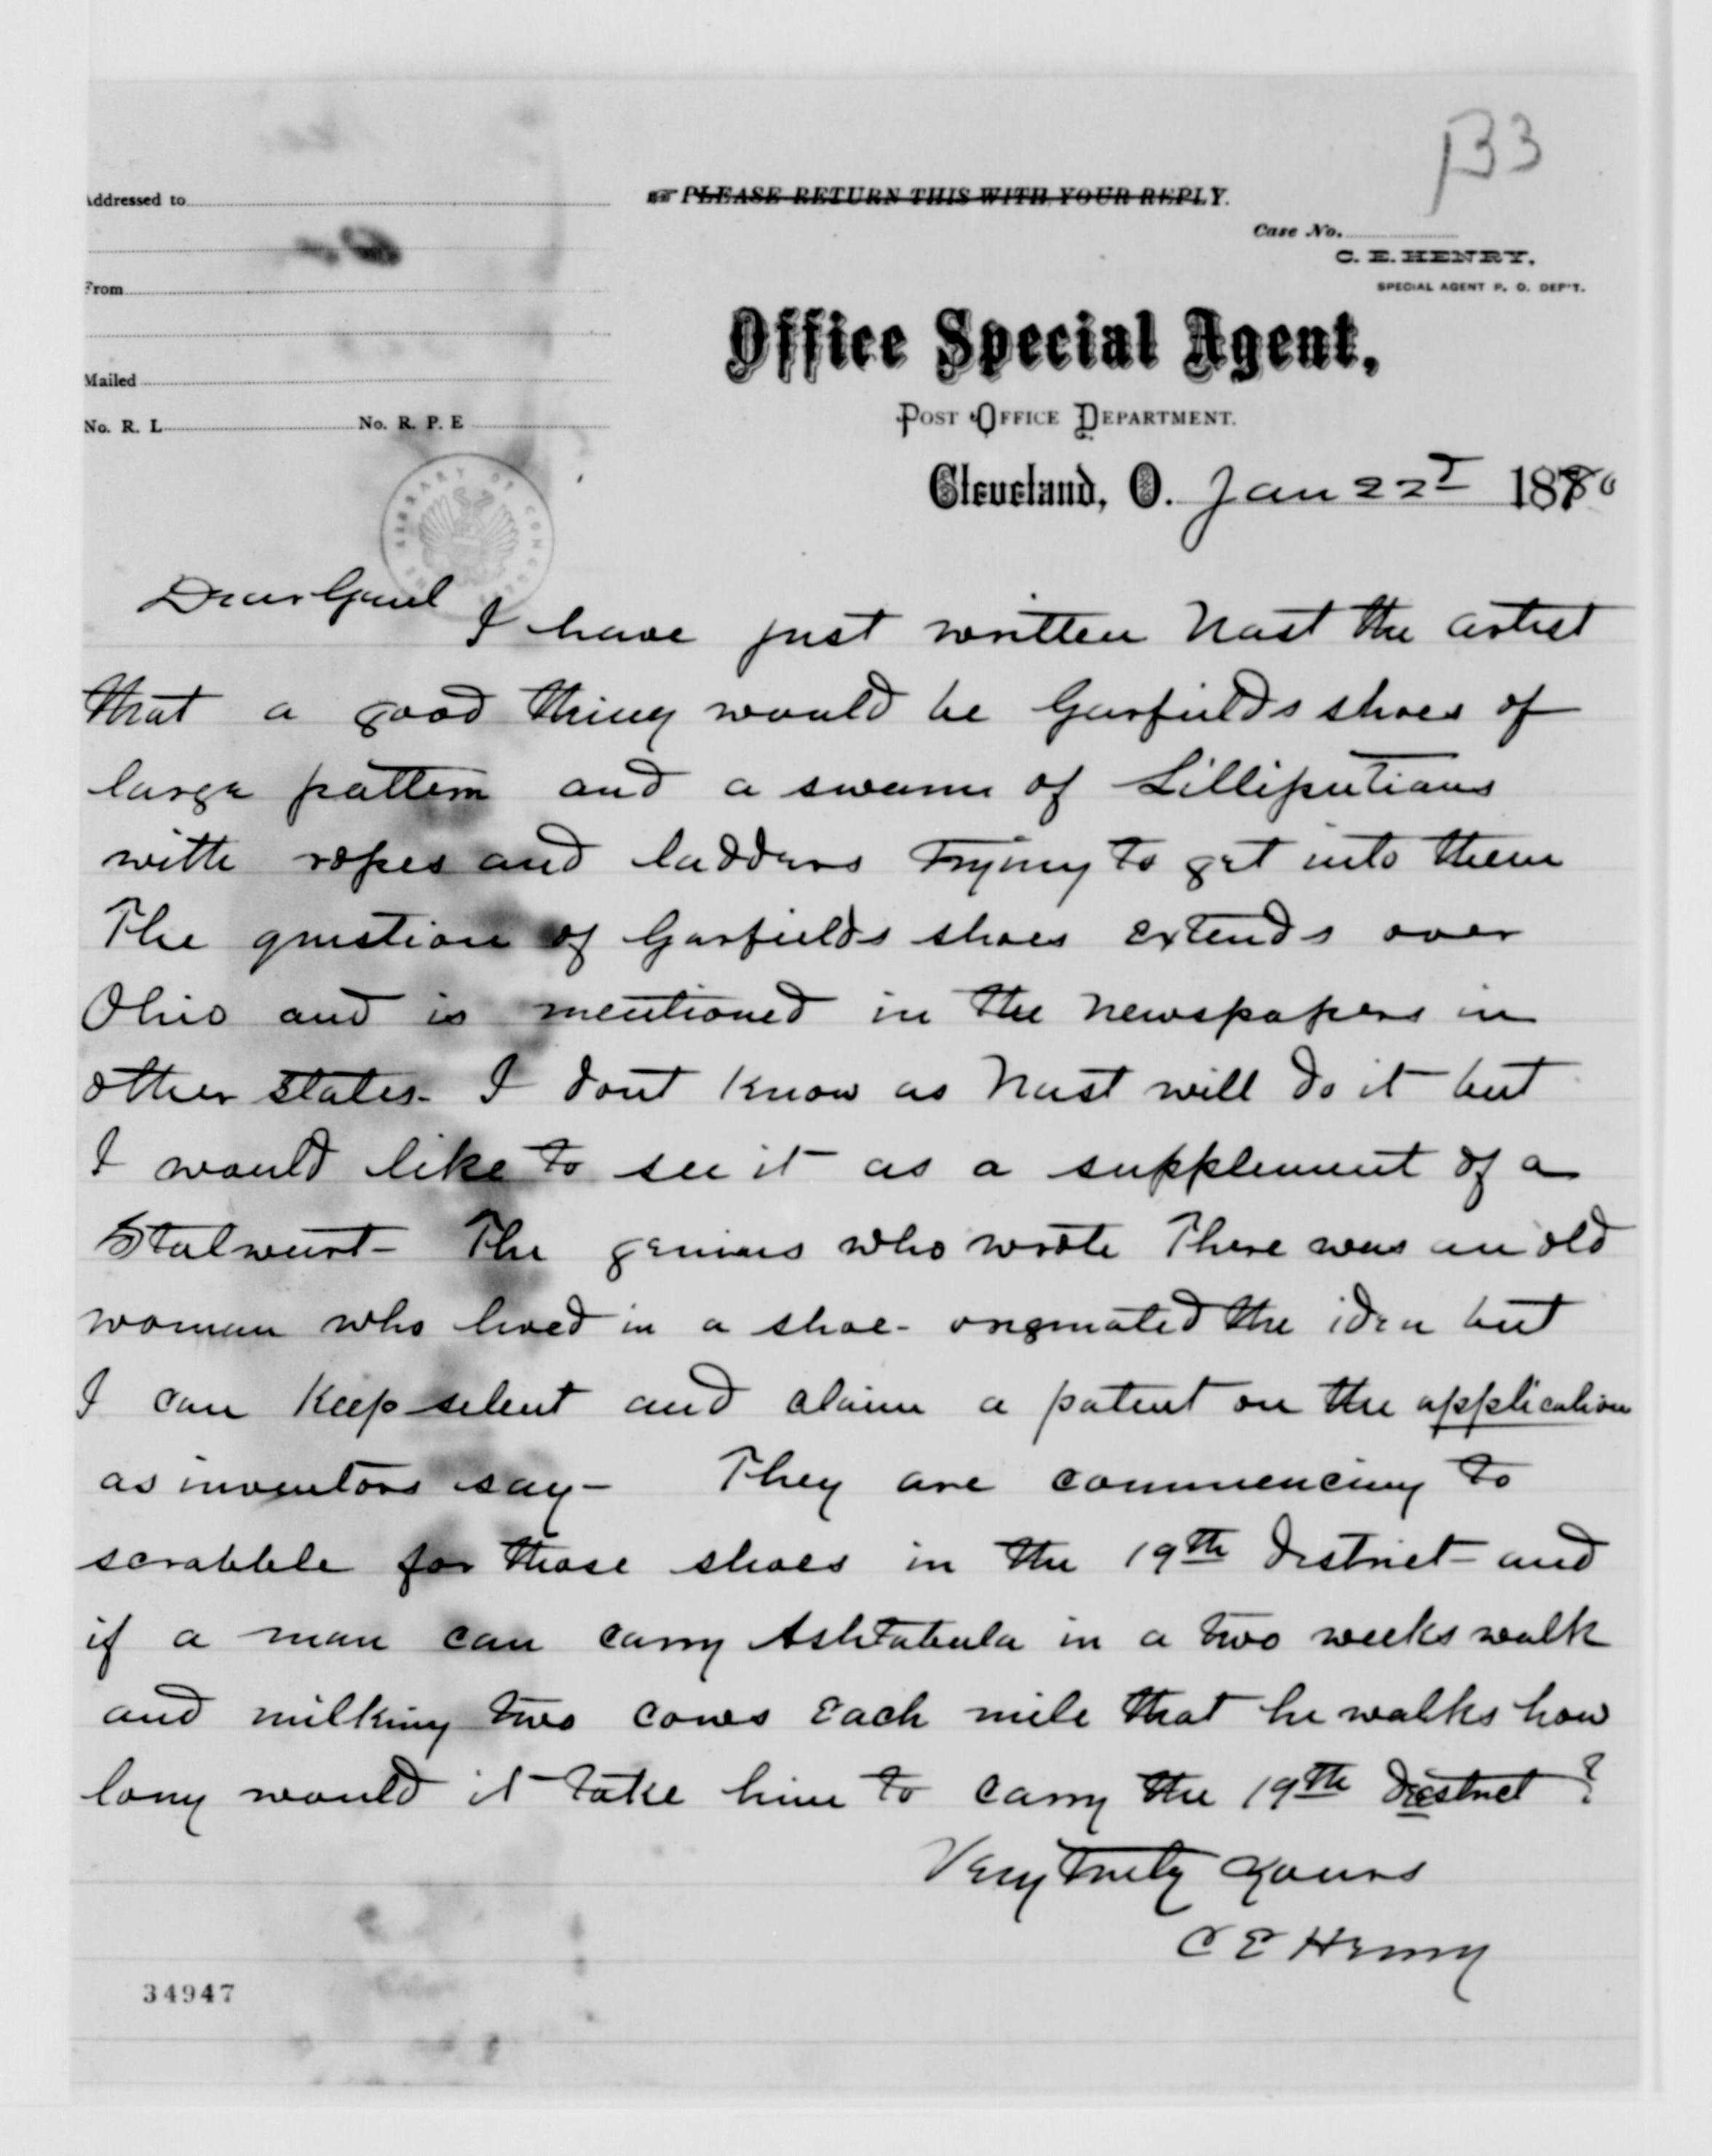 B3
Addressed to
PLEASE RETURN THIS WITH YOUR REPLY.
Case No.
C. E. HENRY,
From
SPECIAL AGENT P. O. DEP'T.
Office Special Agent,
Mailed
POST OFFICE DEPARTMENT.
No. R. L. No. R. P. E
Cleveland, O. Jan 22d 1880
THE LIBRARY OF CONGRESS
Dear Genl
I have just written Nast the artist
that a good thing would be Garfields shoes of
large pattern and a swarm of Lilliputians
with ropes and ladders trying to get into them
The question of Garfields shoes extends over
Ohio and is mentioned in the newspapers in
other states- I dont know as Nast will do it but
I would like to see it as a supplement of a
Stalwart- The genius who wrote There was an old
woman who lived in a shoe- originated the idea but
I can keep silent and claim a patent on the application
as inventors say- They are commencing to
scrabble for those shoes in the 19th District- and
if a man can carry Ashtabula in a two weeks walk
and milking two cows each mile that he walks how
long would it take him to carry the 19th District?
Very truly yours
C E Henry
34947